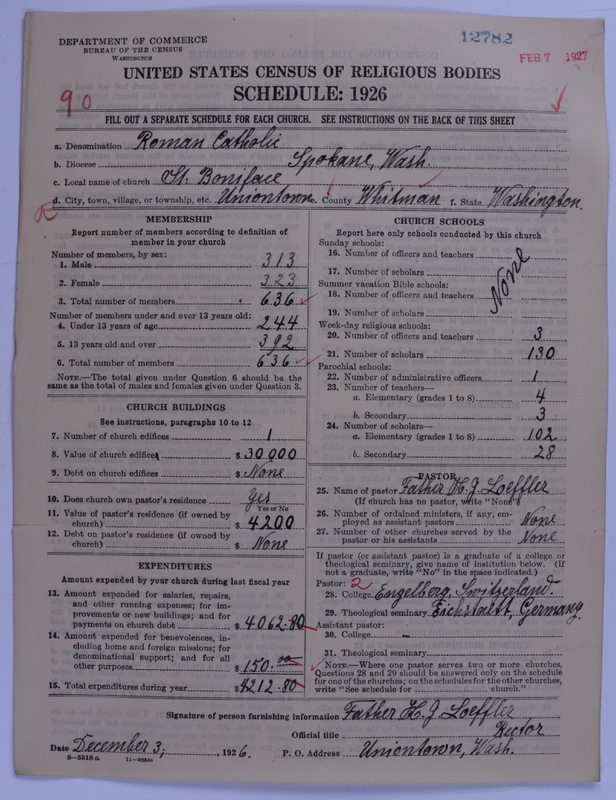 DEPARTMENT OF COMMERCE
BUREAU OF THE CENSUS
WASHINGTON
12782
FEB 7 1927
UNITED STATES CENSUS OF RELIGIOUS BODIES
SCHEDULE: 1926
90
FILL OUT A SEPARATE SCHEDULE FOR EACH CHURCH. SEE INSTRUCTIONS ON THE BACK OF THIS SHEET
a. Denomination Roman Catholic
b. Diocese Spokane, Wash.
c. Local name of church St. Boniface
d. City, town, village, or township, etc. Uniontown e. County Whitman f. State Washington.
MEMBERSHIP
Report number of members according to definition of
member in your church
Number of members, by sex:
1. Male 313
2. Female 323
3. Total number of members 636
Number of members under and over 13 years old:
4. Under 13 years of age 244
5. 13 years old and over 392
6. Total number of members 636
NOTE.—The total given under Question 6 should be the
same as the total of males and females given under Question 3.
CHURCH BUILDINGS
See instructions, paragraphs 10 to 12
7. Number of church edifices 1
8. Value of church edifices $30000
9. Debt on church edifices $ None
10. Does church own pastor's residence Yes
Yes or No
11. Value of pastor's residence (if owned by
church) $ 4200
12. Debt on pastor's residence (if owned by
church) $ None
EXPENDITURES
Amount expended by your church during last fiscal year
13. Amount expended for salaries, repairs,
and other running expenses; for im-
provements or new buildings; and for
payments on church debt $ 4062.80
14. Amount expended for benevolences, in-
cluding home and foreign missions; for
denominational support; and for all
other purposes $ 150.00
15. Total expenditures during year $4212.80
CHURCH SCHOOLS
Report here only schools conducted by this church
Sunday schools:
16. Number of officers and teachers
17. Number of scholars
None
Summer vacation Bible schools:
18. Number of officers and teachers
19. Number of scholars
Week-day religious schools:
20. Number of officers and teachers 3
21. Number of scholars 130
Parochial schools:
22. Number of administrative officers 1
23. Number of teachers—
a. Elementary (grades 1 to 8) 4
b. Secondary 3
24. Number of scholars—
a. Elementary (grades 1 to 8) 102
b. Secondary 28
PASTOR
25. Name of pastor Father H. J. Loeffler
(If church has no pastor, write "None")
26. Number of ordained ministers, if any, em-
ployed as assistant pastors None
27. Number of other churches served by the
pastor or his assistants None
If pastor (or assistant pastor) is a graduate of a college or
theological seminary, give name of institution below. (If
not a graduate, write "No" in the space indicated.)
Pastor: 2
28. College Engelberg, Switzerland.
29. Theological seminary Eichstätt, Germany
Assistant pastor:
30. College —
31. Theological seminary
NOTE.—Where one pastor serves two or more churches,
Questions 28 and 29 should be answered only on the schedule
for one of the churches; on the schedules for the other churches,
write "See schedule for church."
Signature of person furnishing information Father H. J. Loeffler
Official title Rector
Date December 3, , 1926. P. O. Address Uniontown, Wash.
8-5518a 11-9984a